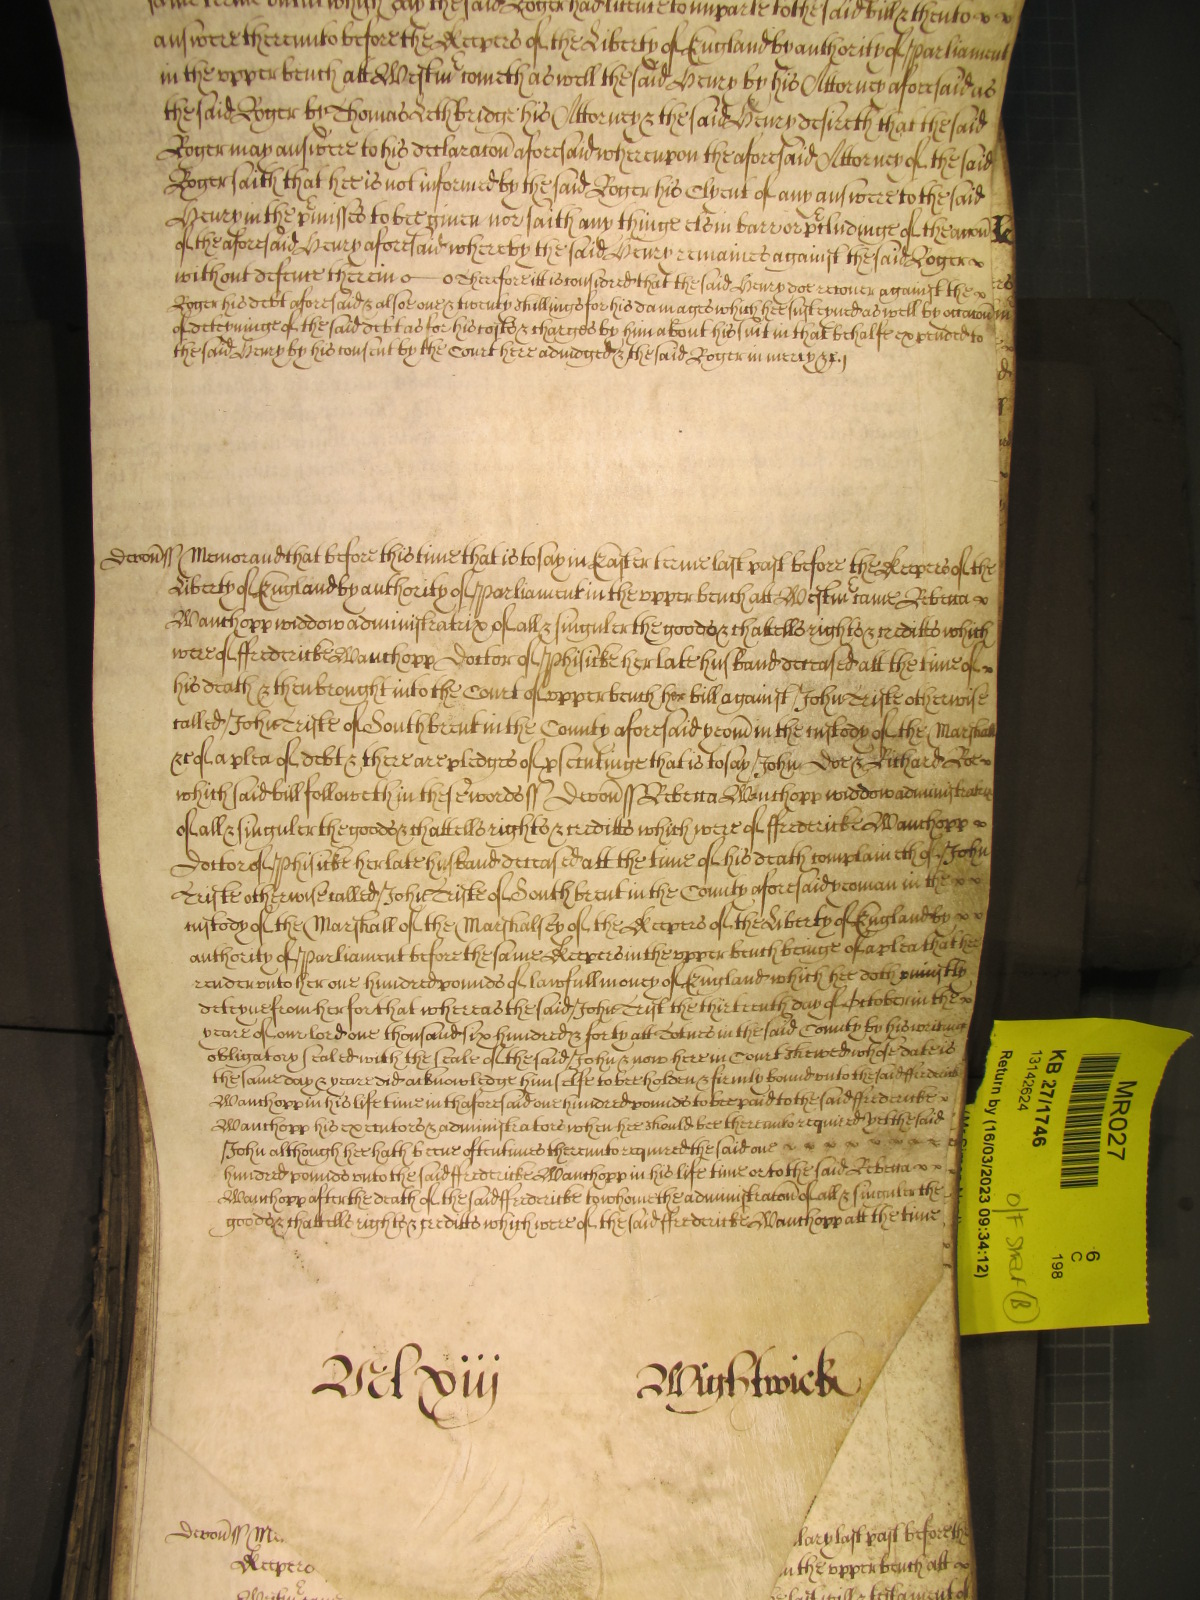 same terme untill which day the said Roger had licence to imparle to the said bill & then to
answere thereunto before the Keepers of the Liberty of England by authority of Parliament
in the upper bench att Westm cometh as well the said Henry by his Attorney aforesaid as
the said Roger by Thomas Lethbridge his Attorney & the said Henry desireth that the said
Roger may answere to his declaracon aforesaid whereupon the aforesaid Attorney of the said
Roger saith that hee is not informed by the said Roger his Clyent of any answere to the said
Henry in the pmisses to bee given nor saith any thinge els in barr or pcludinge of the accon
of the aforesaid Henry aforesaid whereby the said Henry remaines against the said Roger
without defence therein Therefore itt is considred that the said Henry doe recover against the
Roger his debt aforesaid & alsoe one & twenty shillings for his damages which hee susteyned as well by occacon
of deteyninge of the said debt as for his costs & charges by him about his suit in that behalfe expended to
the said Henry by his consent by the Court here adiudged & the said Roger in mercy &c
Devon ss Memorand that before this time that is to say in Easter terme last past before the Keepers of the
Liberty of England by authority of Parliament in the upper bench att Westm came Rebecca
Wauchopp widdow administratrix of all & singuler the goods & chattells rights & creditts which
were of ffredericke Wauchopp Doctor of Phisicke her late husband deceased att the time of
his death & then brought into the Court of upper bench her bill against John Triske otherwise
called John Triske of Southbrent in the County aforesaid yeom in the custody of the Marshall
&c of a plea of debt & there are pledges of psecutinge that is to say John Doe & Richard Roe
which said bill followeth in these words ss Devon ss Rebecca Wauchopp widdow administratrix
of all & singuler the goods & chattells rights & creditts which were of ffredericke Wauchopp
Doctor of Phisicke her late husband deceased att the time of his death complaineth of John
Triske otherwise called John Triske of Southbrent in the County aforesaid yeoman in the
custody of the Marshall of the Marshalsey of the Keepers of the Liberty of England by
authority of Parliament before the same Keepers in the upper bench beinge of a plea that hee
render unto her one hundred pounds of lawfull money of England which hee doth uniustly
deteyne from her for that whereas the said John Trist the thirteenth day of October in the
yeare of our lord one thousand six hundred & forty att Totnes in the said County by his writing
obligatory sealed with the seale of the said John & now here in Court shewed whose date is
the same day & yeare did acknowledge himselfe to bee holden & firmly bound unto the said ffredericke
Wauchopp in his life time in thaforesaid one hundred pounds to bee paid to the said ffredericke
Wauchopp his executors & administrators when hee should bee thereunto required Yet the said
John although hee hath beene oftentimes thereunto required the said one
hundred pounds unto the said ffredericke Wauchopp in his life time or to the said Rebecca
Wauchopp after the death of the said ffredericke to whome the administracon of all & singuler the
goods & chattells rights & creditts which were of the said ffredericke Wauchopp att the time
Wightwick
Devon ss Me
lary last past before the
Keepers
in the upper bench att
MR027
KB 27/1746
13142624
Return by (16/03/2023 09:34:12)
6
C
198